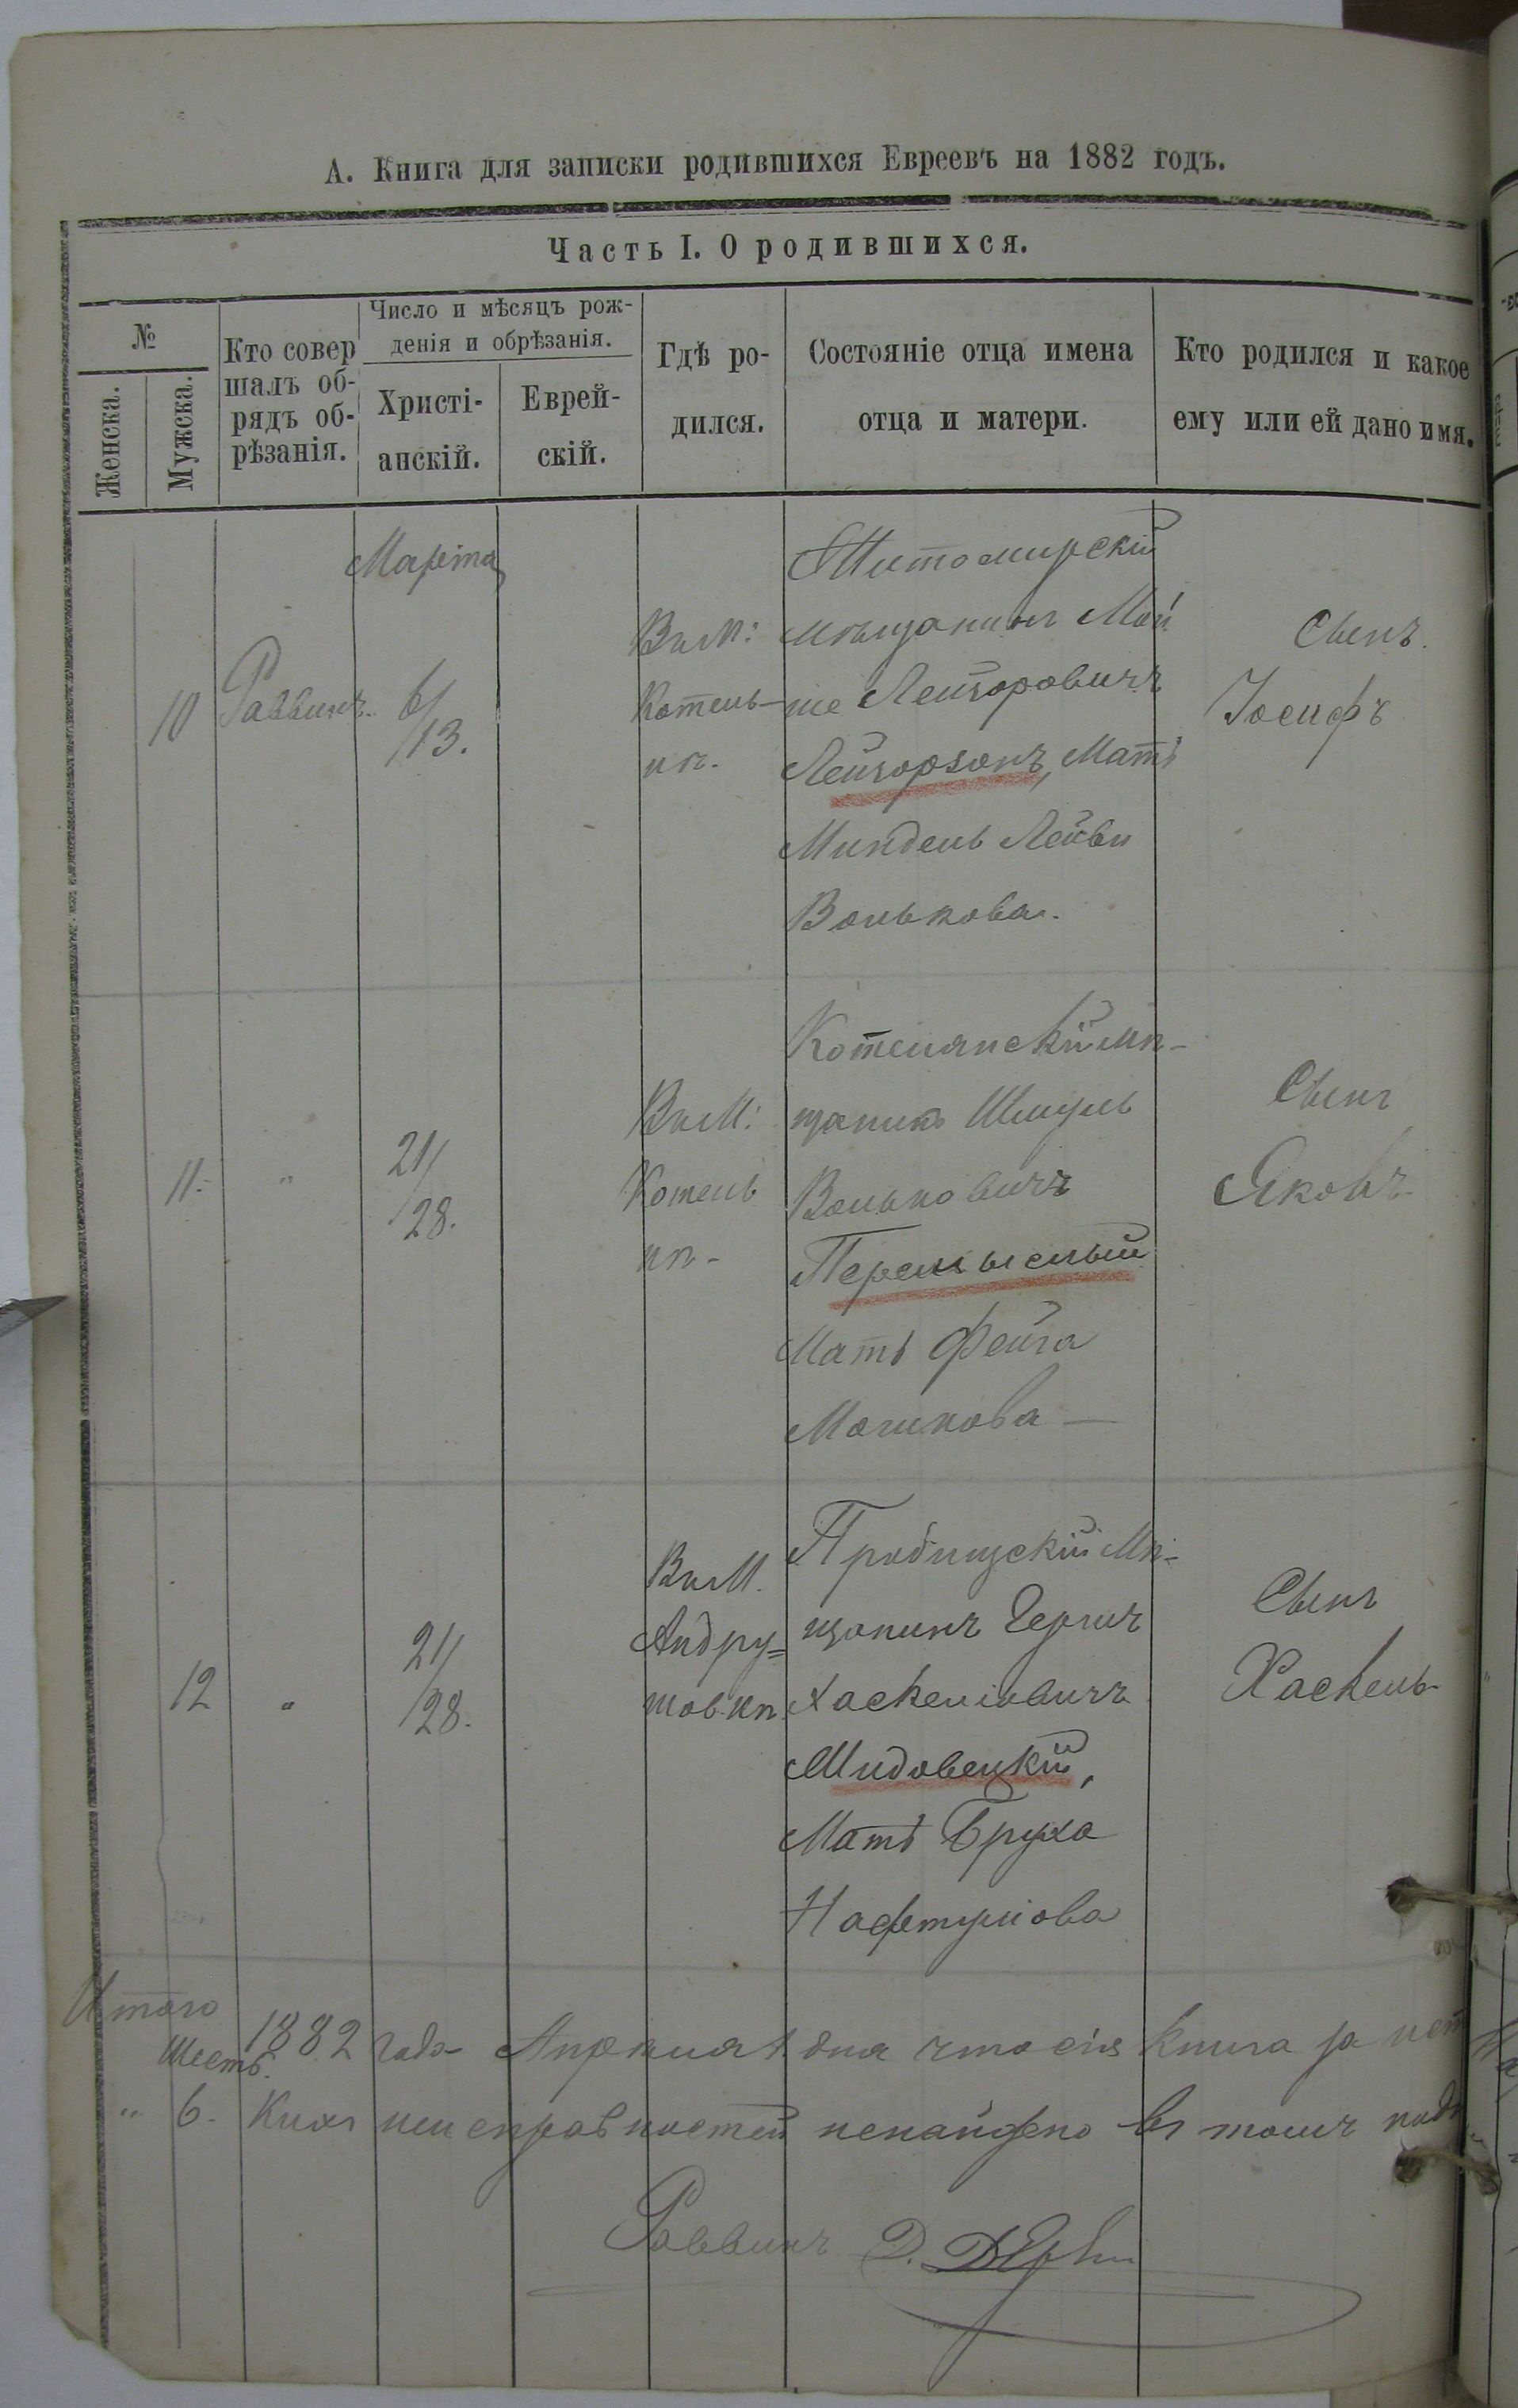 А. Книга для записки родившихся Евреевъ на 1882 годъ.
Часть I. О родившихся.
№
Женска.
Мужска.
Кто совер
шалъ об-
рядъ об-
рѣзанія.
Число и мѣсяцъ рож-
денія и обрѣзанія.
Христі-
анскій.
Еврей-
скій.
Гдѣ ро-
дился.
Состояніе отца имена
отца и матери.
Кто родился и какое
ему или ей дано имя.
Марта
10
Раввинъ
6/
13.
Въ М:
Котель-
нѣ.
Житомирскій
мѣщанинъ Мой
ше Лейзоровичъ
Лейзорзонъ, Мать
Миндель Лейви
Волькова.
Сынъ.
Іосифъ
11.
"
21/
28.
Въ М:
Котель
нѣ-
Котелянскій мѣ-
щанинъ Шмуль
Вольковичъ
Мать Фейга
Маликова
Сынъ
Яковъ.
12
"
21/
28.
Въ М.
Андру=
шовкѣ
мѣ-
щанинъ Гершъ
Хаскеліовичъ
Мать Бруха
Нафтуліова
Сынъ
Хаскель
Итого
Шесть.
" 6.
1882 года Апрѣля 1 дня что сія книга
неисправностей ненайдено въ томъ
Раввинъ Д.